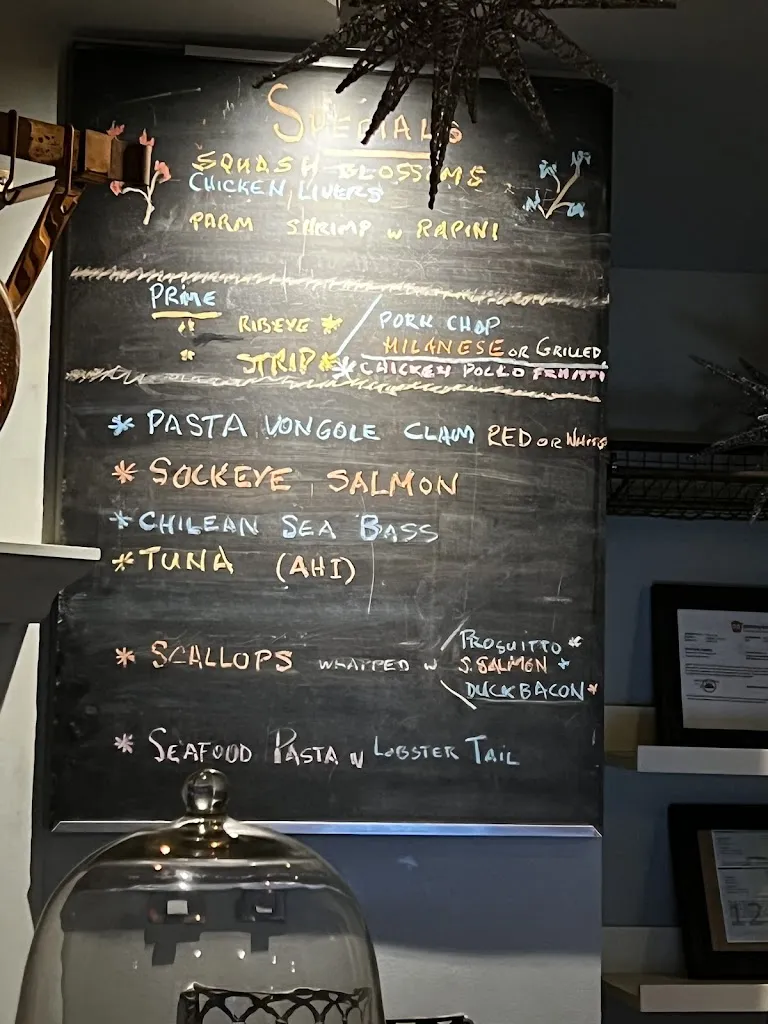 SPECIALS
SQUASH BLOSSOMS
CHICKEN LIVERS
PARM SHRIMP W RAPINI
PRIME
" RIBEYE *
" STRIP *
PORK CHOP
MILANESE OR GRILLED
* CHICKEN POLLO
* PASTA VONGOLE CLAM RED OR WHITE
* SOCKEYE SALMON
* CHILEAN SEA BASS
* TUNA (AHI)
* SCALLOPS WRAPPED W
PROSUITTO *
S. SALMON *
DUCK BACON *
* SEAFOOD PASTA W LOBSTER TAIL